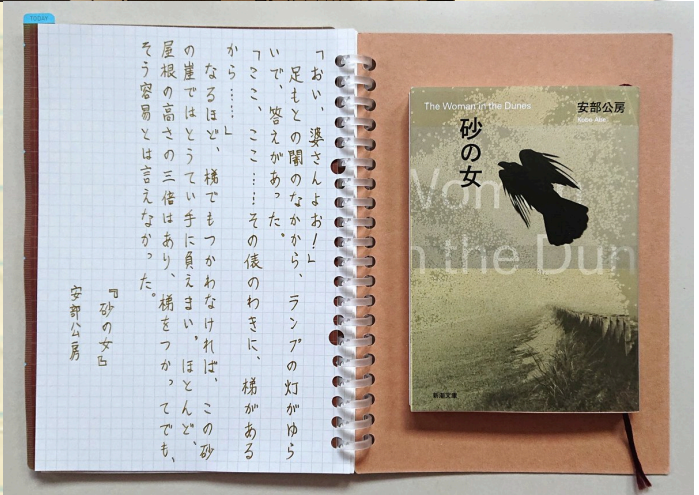 TODAY
「おい、婆さんよお！」
足もとの闇のなかから、ランプの灯がゆら
いで、答えがあった。
「ここ、ここ……その俵のわきに、梯がある
から……」
なるほど、梯でもつかわなければ、この砂
の崖ではとうてい手に負えまい。ほとんど、
屋根の高さの三倍はあり、梯をつかってでも、
そう容易とは言えなかった。
『砂の女』
安部公房
The Woman in the Dunes
安部公房
Kobo Abe
砂の女
Wom
n the Dun
新潮文庫